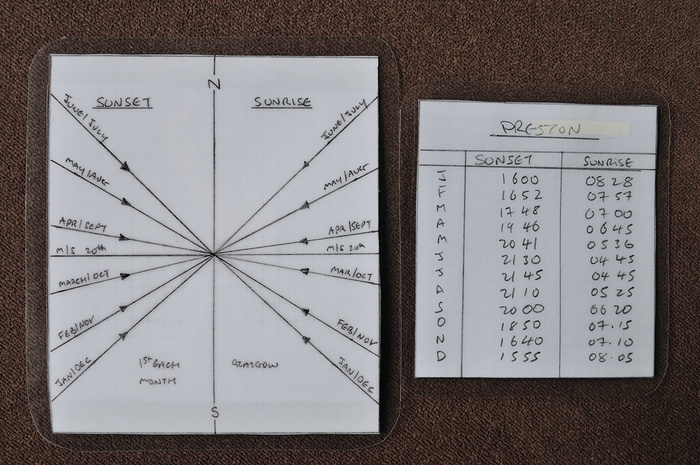 N
SUNSET
SUNRISE
JUNE/JULY
JUNE/JULY
MAY/AUGT
MAY/AUGT
APR/SEPT
APR/SEPT
M/S 20th
M/S 20th
MARCH/OCT
MAR/OCT
FEB/NOV
FEB/NOV
JAN/DEC
JAN/DEC
1ST EACH
MONTH
GLASGOW
S
PRESTON
SUNSET SUNRISE
J 1600 0828
F 1652 0757
M 1748 0700
A 1946 0645
M 2041 0536
J 2130 0445
J 2145 0445
A 2110 0525
S 2000 0620
O 1850 07.15
N 1640 07.10
D 1555 08.05